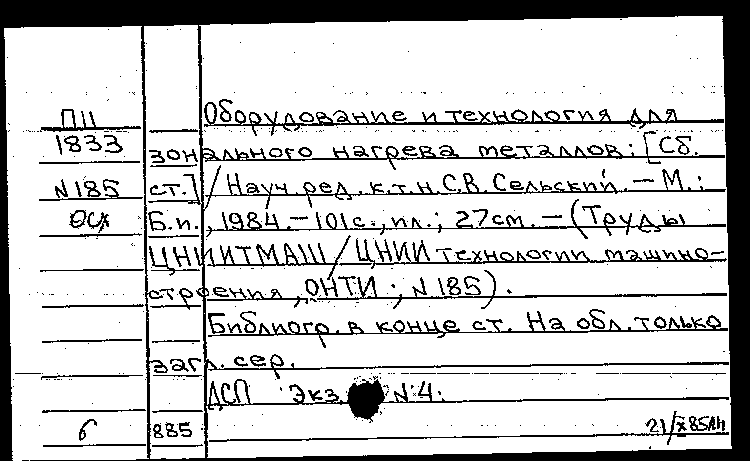 П11 Оборудование и технология для
1833 зонального нагрева металлов: [Сб.
N185 ст.] / Науч. ред. к.т.н. С.В. Сельский. — М.:
осх Б.и., 1984. — 101с., ил.; 27см. — (Труды
ЦНИИТМАШ / ЦНИИ технологии машино-
строения, ОНТИ; N185).
Библиогр. в конце ст. На обл. только
загл. сер.
ДСП Экз. N4.
б 885 21/X 85